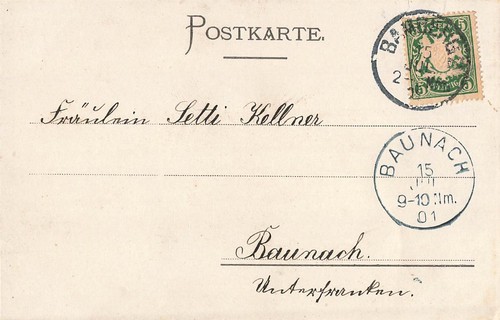 POSTKARTE.
BAM
5
2-
Fräulein Setti Kellner
BAUNACH
15
9-10 Nm.
01
Baunach.
Unterfranken.